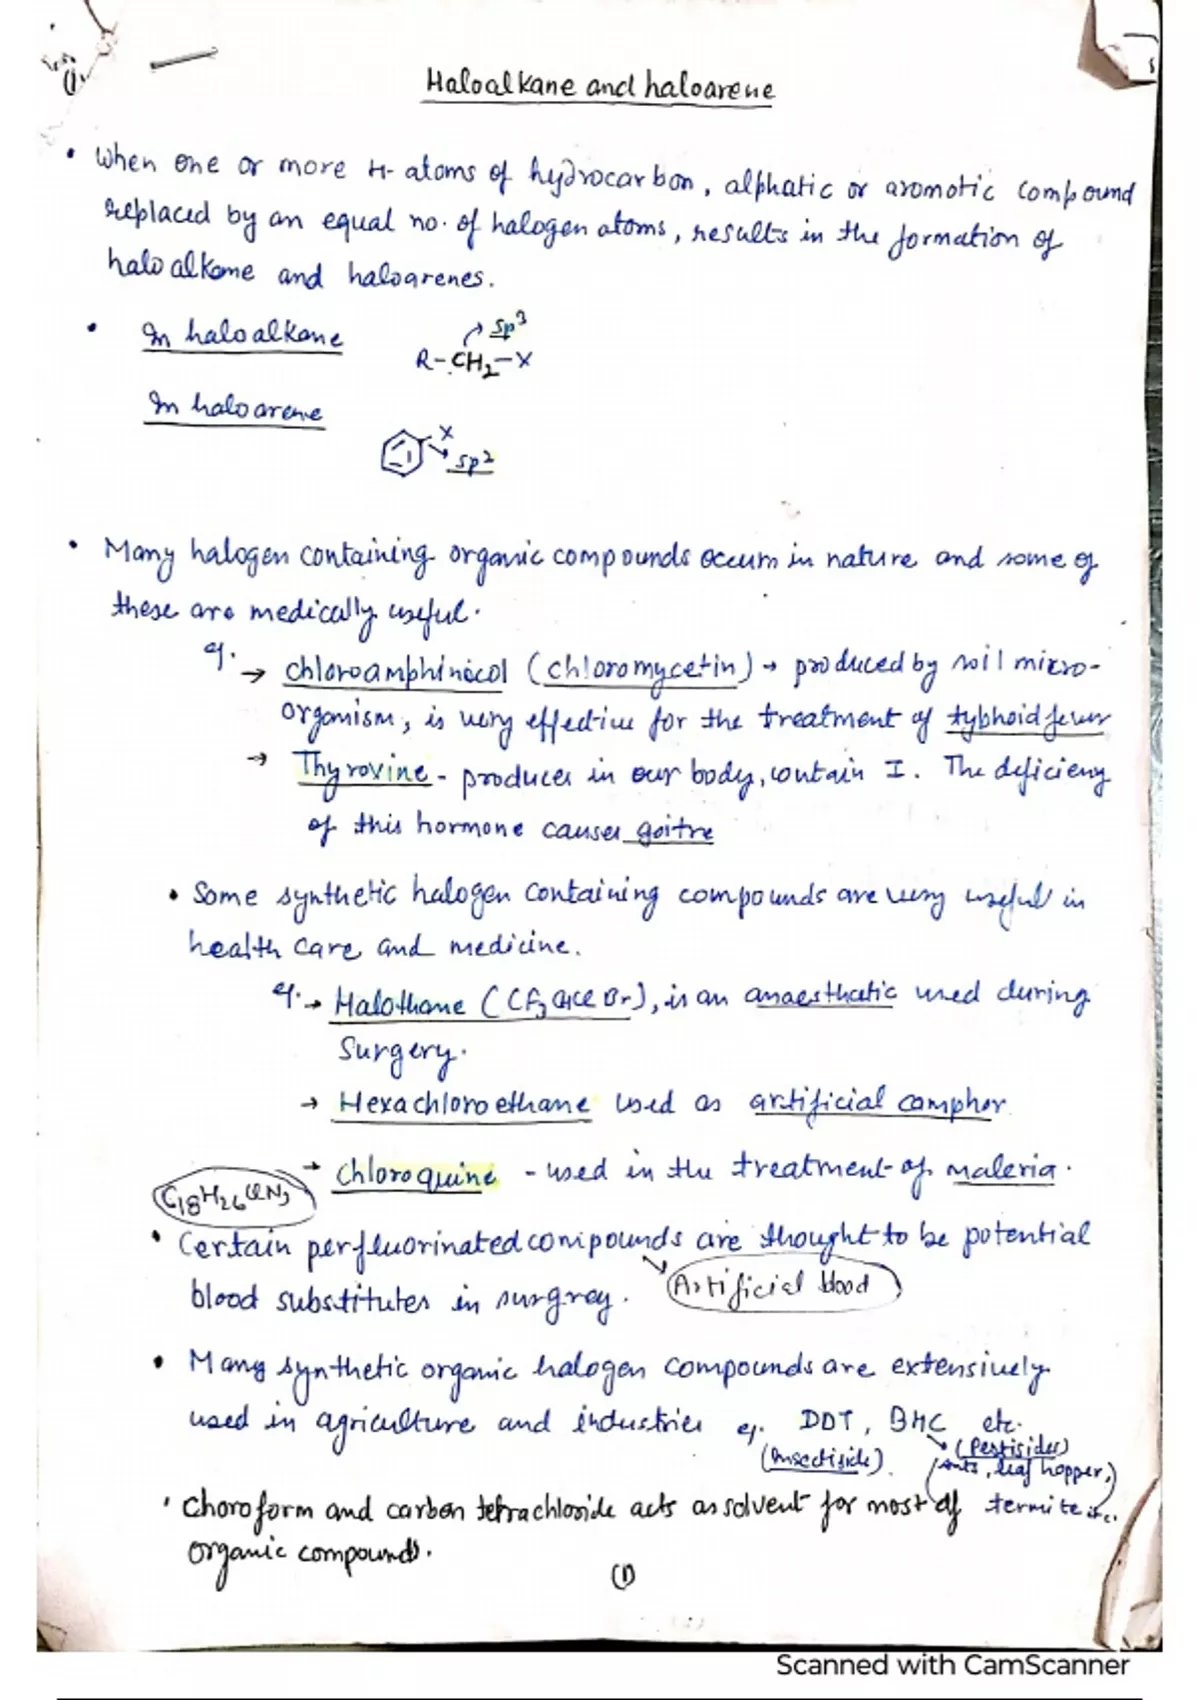 Haloalkane and haloarene
• When one or more H- atoms of hydrocarbon, alphatic or aromotic compound
replaced by an equal no. of halogen atoms, results in the formation of
halo alkane and haloarenes.
• In haloalkane
sp3
R-CH2-X
In haloarene
X
sp2
• Many halogen containing organic compounds occurn in nature and some of
these are medically useful.
eg. → chloroamphinicol (chloromycetin) → produced by soil micro-
organism, is very effective for the treatment of typhoid fever
→ Thyrovine - produces in our body, contain I. The deficieny
of this hormone causes goitre
• Some synthetic halogen containing compounds are very useful in
health care and medicine.
eg. → Halothane (CF3CHClBr), is an anaesthatic used during
Surgery.
→ Hexachloroethane used as artificial camphor
→ chloroquine - used in the treatment of maleria.
C18H26ClN3
• Certain perfluorinated compounds are thought to be potential
blood substitutes in surgrey. Artificial blood
• Many synthetic organic halogen compounds are extensively
used in agriculture and industries eg. DDT, BHC etc.
(Insectiside) (Pestisides)
(ants, leaf hopper,
• Choroform and carbon tetrachloride acts as solvent for most of termite etc.)
organic compounds.
(1)
Scanned with CamScanner